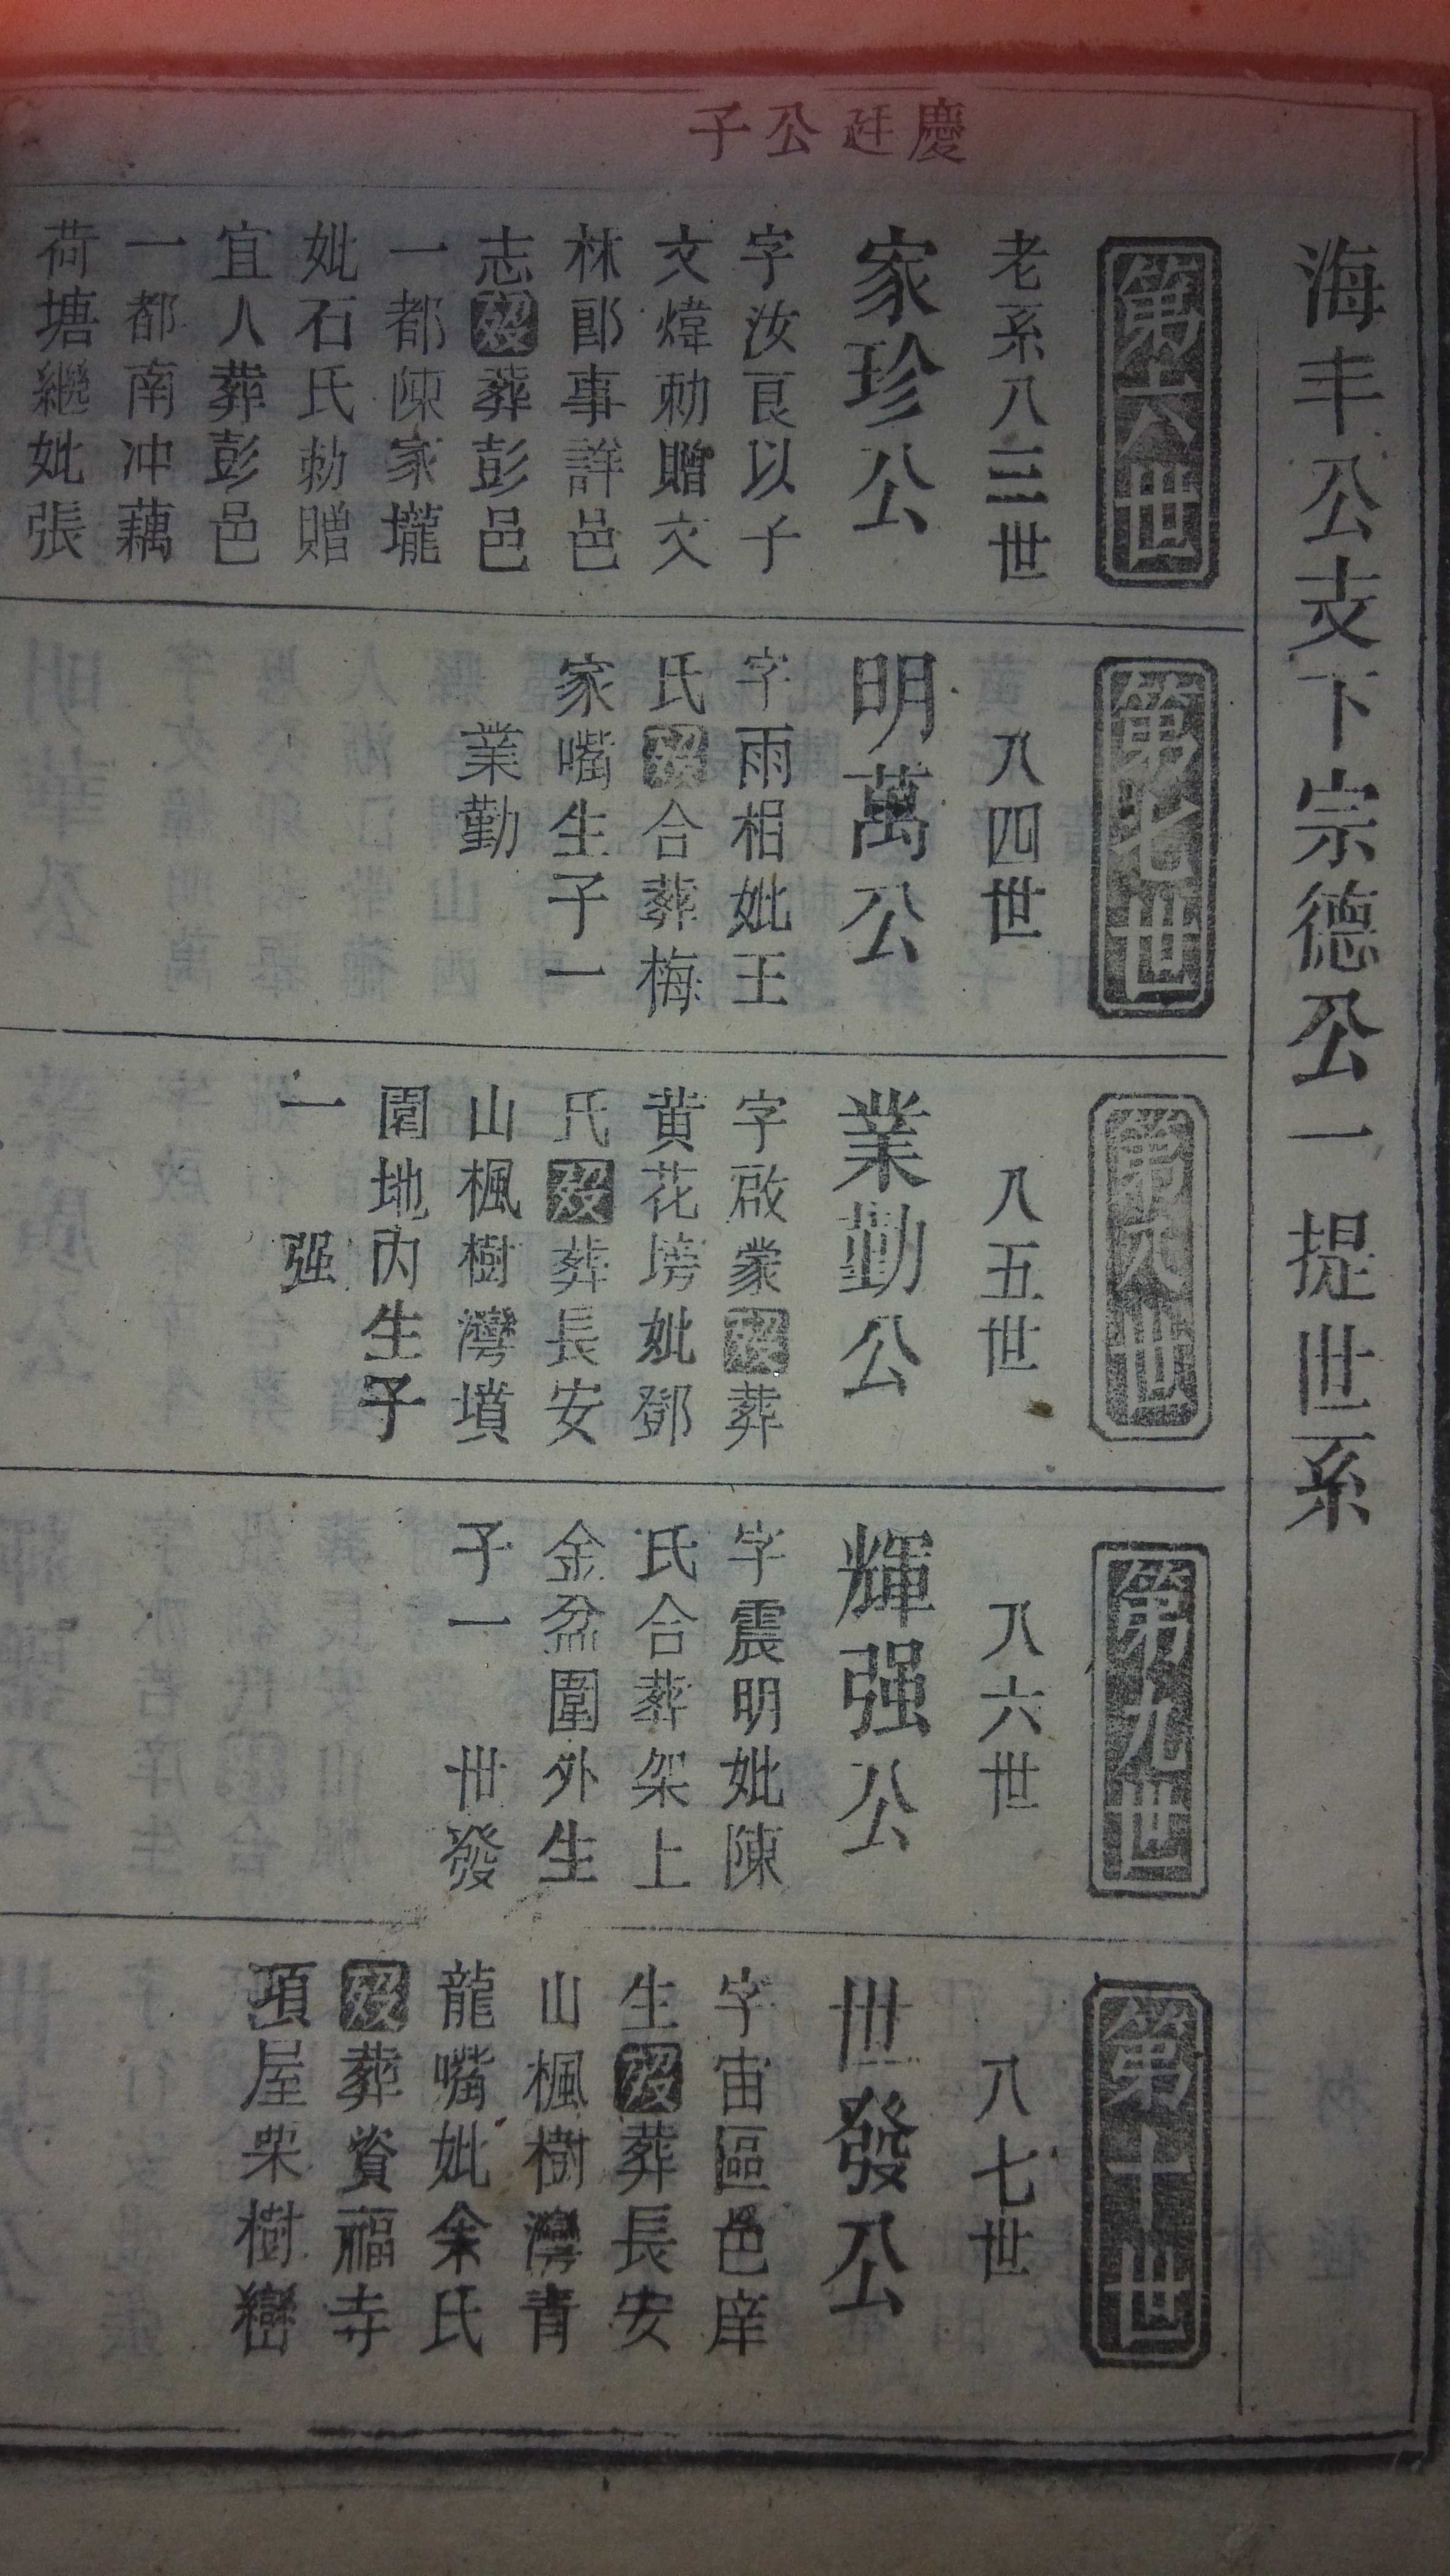 海丰公支下宗德公一提世系
慶廷公子
第六世
老系八三世
家珍公
字汝良以子
文煒勅贈文
林郎事詳邑
志歿葬彭邑
一都陳家壠
妣石氏勅贈
宜人葬彭邑
一都南冲藕
荷塘繼妣張
第七世
八四世
明萬公
字雨相妣王
氏歿合葬梅
家嘴生子一
業勤
第八世
八五世
業勤公
字啟蒙歿葬
黄花塝妣鄧
氏歿葬長安
山楓樹灣墳
圍地內生子
一
强
第九世
八六世
輝强公
字震明妣陳
氏合葬架上
金盆圍外生
子一 丗發
第十世
八七世
丗發公
字宙區邑庠
生歿葬長安
山楓樹灣青
龍嘴妣余氏
歿葬資福寺
項屋桌樹巒